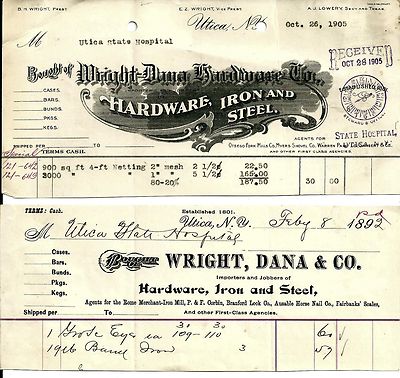 B. H. WRIGHT, PREST. E. Z. WRIGHT, VICE PREST. A. J. LOWERY, SECY AND TREAS.
Utica, N.Y. Oct. 26, 1905
M Utica State Hospital
RECEIVED
OCT 28 1905
STATE HOSPITAL
Bought of Wright-Dana Hardware Co.,
HARDWARE, IRON AND STEEL.
CASES.
BARS.
BUNDS.
PKGS.
KEGS.
AGENTS FOR
OTSEGO FORK MILLS CO.
AND OTHER FIRST CLASS AGENCIES.
SHIPPED PER TO
Special TERMS CASH.
900 sq ft 4-ft Netting 2" mesh 2 1/2¢ 22.50
3000 " " 1" " 5 1/2¢ 165.00
80-20% 187.50 30 00
TERMS: Cash. Established 1801.
Utica, N.Y. Feby 8 1892
M. Utica State Hospital
Bought of WRIGHT, DANA & CO.
Importers and Jobbers of
Hardware, Iron and Steel,
Cases.
Bars.
Bunds.
Pkgs.
Kegs.
Agents for the Rome Merchant-Iron Mill, P. & F. Corbin, Branford Lock Co., Ausable Horse Nail Co., Fairbanks' Scales,
Shipped per to And other First-Class Agencies.
1 Gross
109-110
Iron 3 57